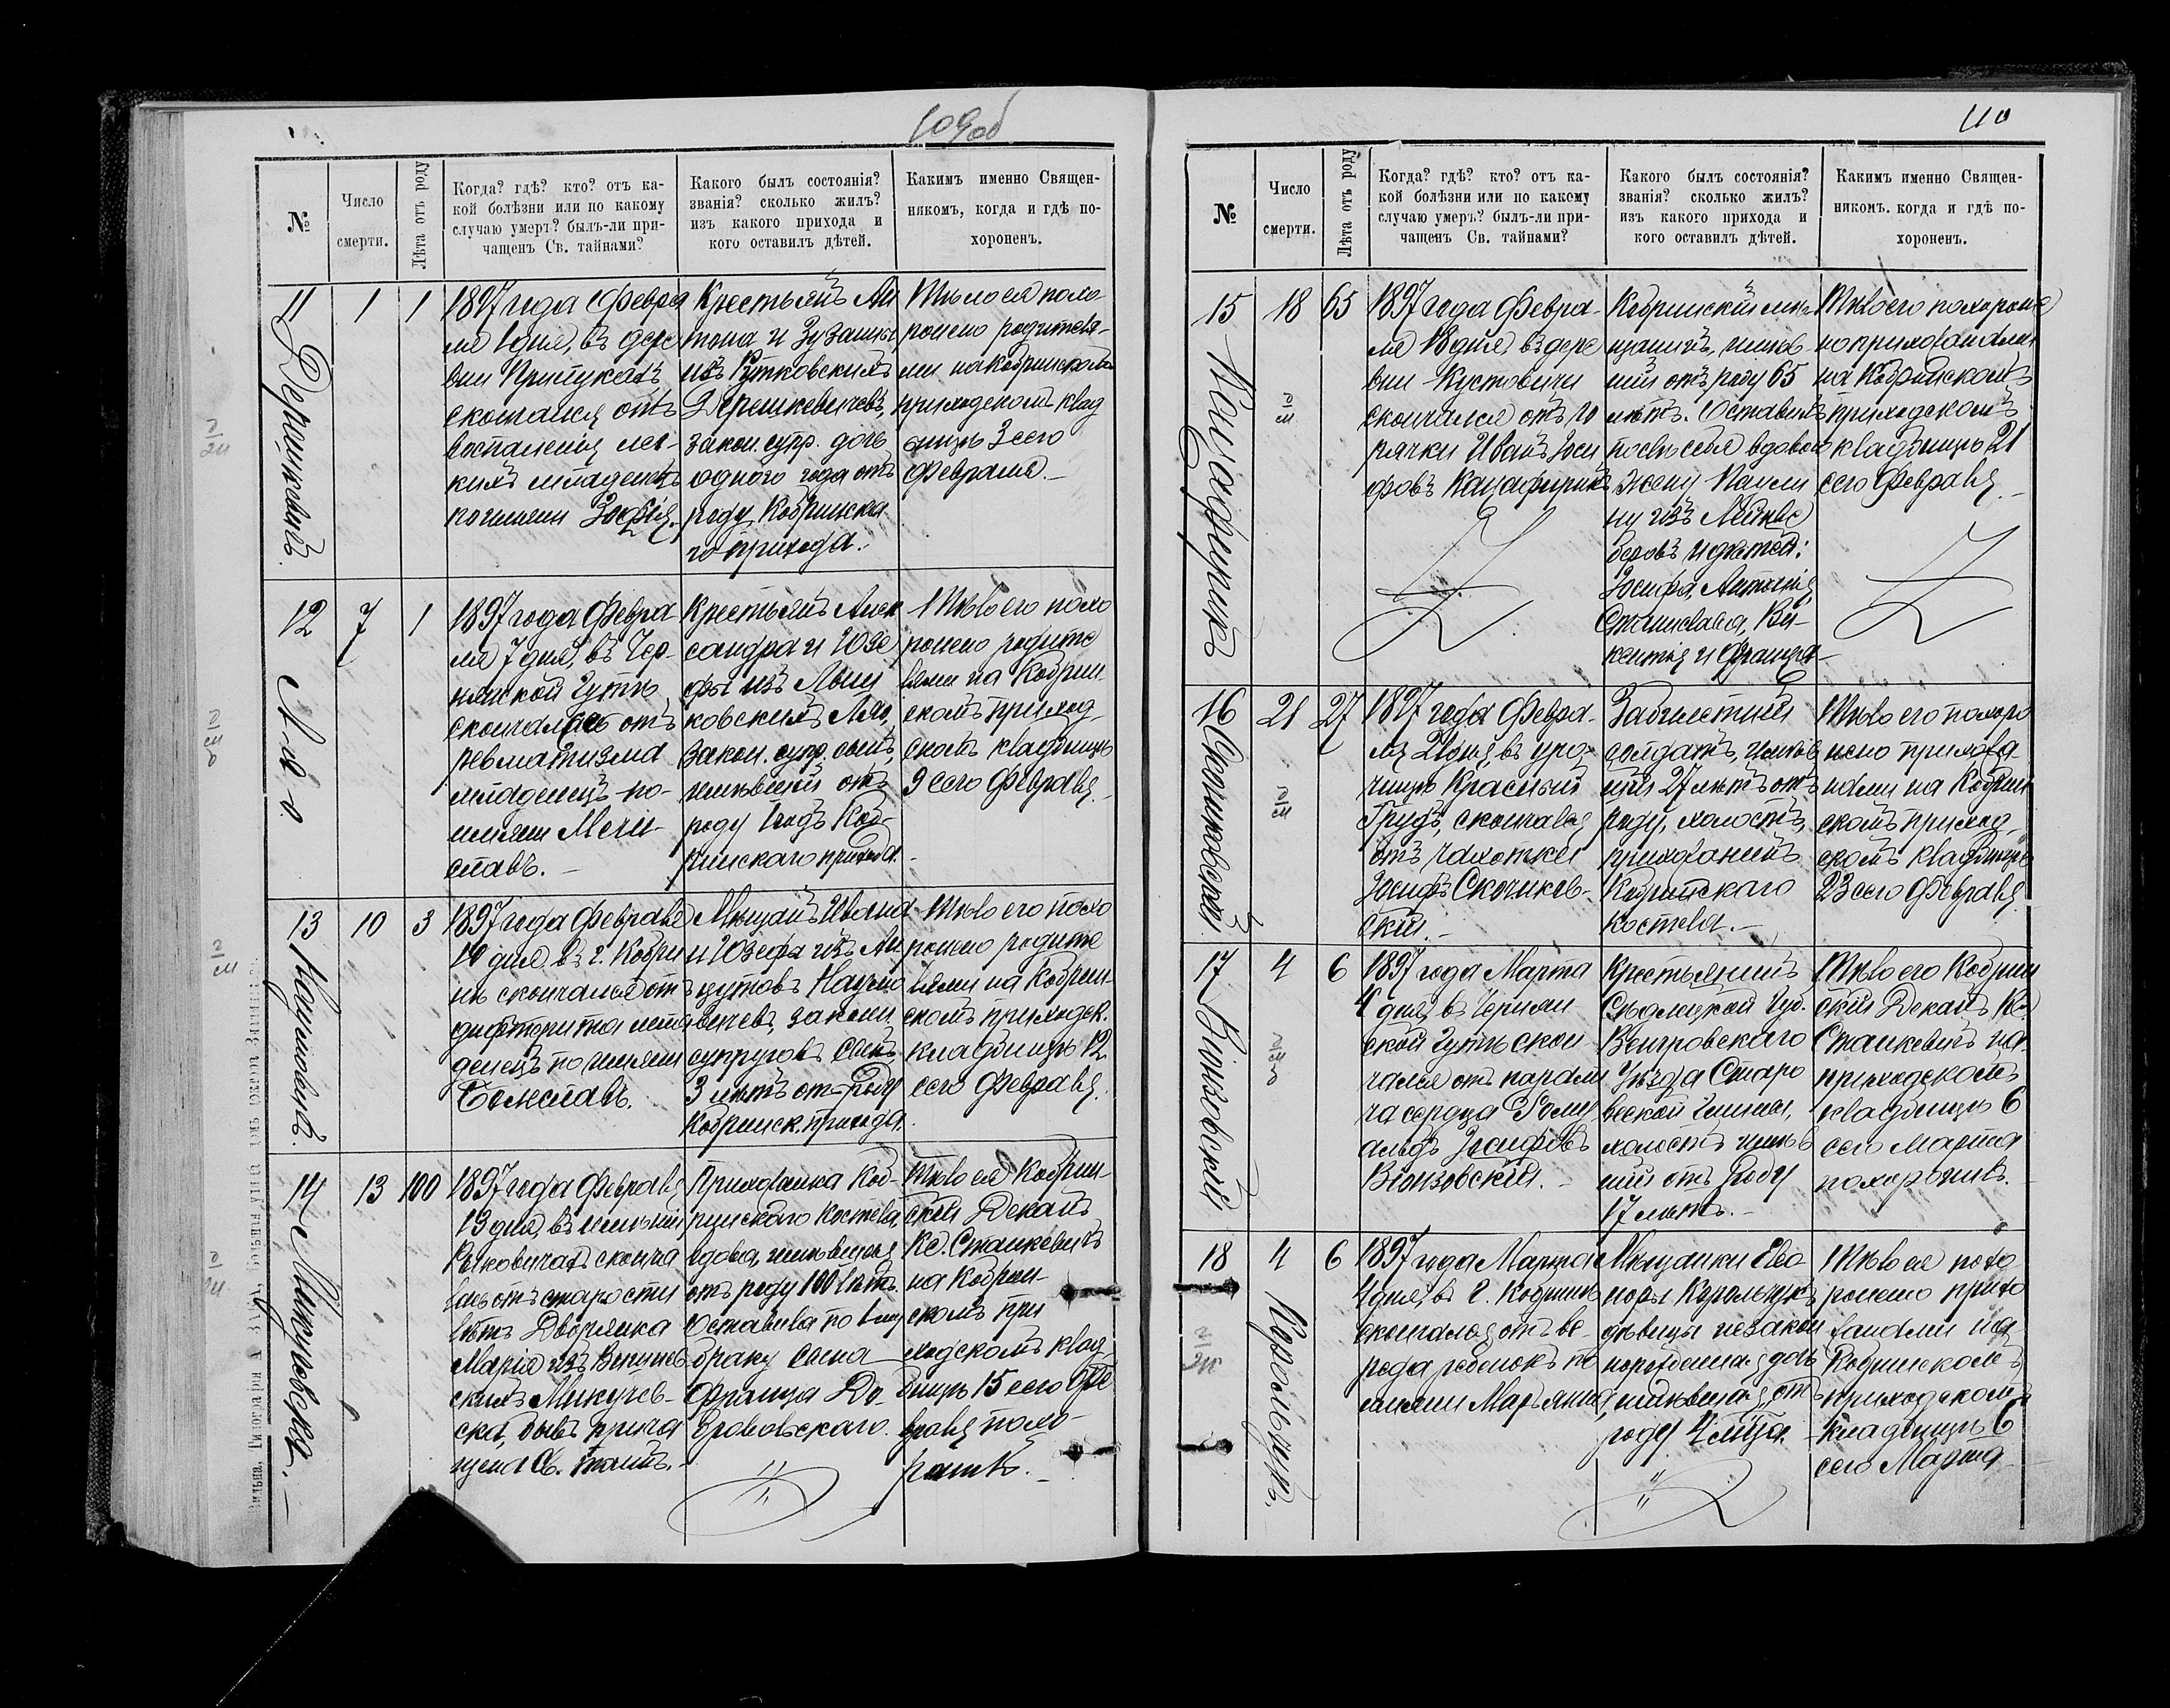 109об
№
Число
смерти.
Лѣта отъ роду
Когда? гдѣ? кто? отъ ка-
кой болѣзни или по какому
случаю умеръ? былъ-ли при-
чащенъ Св. тайнами?
Какого былъ состоянія?
званія? сколько жилъ?
изъ какого прихода и
кого оставилъ дѣтей.
Какимъ именно Священ-
никомъ, когда и гдѣ по-
хороненъ.
11
1
1
1897 года Февра
ля 1 дня, въ дере
вни
скончался отъ
воспаленія лег-
кихъ младенецъ
по имени Зофія.
Крестьянъ Ан
тона и Зузанны
изъ Рутковскихъ
Дерешкевичевъ,
закон. супр. дочь
одного года отъ
роду Кобринска
го прихода.
Тѣло ея похо-
ронено родителя-
ми на Кобринскомъ
приходскомъ клад
бищѣ 3 сего
Февраля.
12
7
1
1897 года Февра
ля 7 дня, въ Чер-
нянской Гутѣ
скончался отъ
ревматизма
младенецъ по-
имени Мечи-
славъ.
Крестьянъ Алек
сандра и Юзе
фы изъ
ковскихъ
закон. супр. сынъ,
имѣвшій отъ
роду годъ Коб-
ринскаго прихода.
Тѣло его похо
ронено родите
лями на Кобрин
скомъ приход
скомъ кладбищѣ
9 сего Февраля.
13
Наумовичъ.
10
3
1897 года Февраля
10 дня, въ г. Кобри
нѣ скончался отъ
дифтерита мла
денецъ по имени
Болеславъ.
Мѣщанъ Ивана
и Юзефы изъ Ан
цутовъ Наумо
вичевъ, законн.
супруговъ сынъ,
3 лѣтъ отъ роду
Кобринск. прихода.
Тѣло его похо
ронено родите
лями на Кобрин-
скомъ приходск.
кладбищѣ 12
сего Февраля.
14
13
100
1897 года Февраля
13 дня, въ имѣніи
сконча
лась отъ старости
лѣтъ Дворянка
Марія изъ
скихъ Микулов-
ска, бывъ прича
щена Св. Таинъ.
Прихожанка Коб-
ринскаго костела,
вдова, имѣвшая
отъ роду 100 лѣтъ.
Оставила по 1му
браку сына
Франца До-
бровольскаго.
Тѣло ея Кобрин-
скій Деканъ
Кс. Станкевичъ
на Кобрин-
скомъ при
ходскомъ клад
бищѣ 15 сего Фе
враля похо-
ронилъ.
110
№
Число
смерти.
Лѣта отъ роду
Когда? гдѣ? кто? отъ ка-
кой болѣзни или по какому
случаю умеръ? былъ-ли при-
чащенъ Св. тайнами?
Какого былъ состоянія?
званія? сколько жилъ?
изъ какого прихода и
кого оставилъ дѣтей.
Какимъ именно Священ-
никомъ. когда и гдѣ по-
хороненъ.
15
18
65
1897 года Февра-
ля 18 дня, въ дере
вни Кустовичи
скончался отъ го
рячки Иванъ Іоси
фовъ
Кобринскій мѣ-
щанинъ, имѣв-
шій отъ роду 65
лѣтъ. Оставилъ
послѣ себя вдовою
жену Паули
ну изъ
беровъ и дѣтей:
Іосифа, Антонія,
Станислава, Ви-
кентія и Франца.
Тѣло его похороне
но прихожанами
на Кобринскомъ
приходскомъ
кладбищѣ 21
сего Февраля.
16
Скочиковскій
21
27
1897 года Февра-
ля 21 дня, въ уро-
чищѣ Красный
Грудъ, скончался
отъ чахотки
Іосифъ Скочиков-
скій.
Забилетный
солдатъ, имѣв
шій 27 лѣтъ отъ
роду, холостъ,
прихожанинъ
Кобринскаго
костела.
Тѣло его похоро
нено прихожа-
нами на Кобрин
скомъ приход
скомъ кладбищѣ
23 сего Февраля.
17
4
6
1897 года Марта
4 дня, въ Чернян
ской Гутѣ скон
чался отъ парали
ча сердца Рому
альдъ Іосифовъ
Крестьянинъ
Сѣдлецкой Губ.
Венгровскаго
Уѣзда Старо
веской гмины,
холостъ имѣв
шій отъ роду
17 лѣтъ.
Тѣло его Кобрин
скій Деканъ Кс.
Станкевичъ на
приходскомъ
кладбищѣ 6
сего Марта
похоронилъ.
18
Корольчукъ.
4
6
1897 года Марта
4 дня, въ г. Кобринѣ
скончалась отъ ве-
реда ребенокъ по
имени Марьянна
Мѣщанки Елео
норы Корольчукъ
дѣвицы незакон
норожденная дочь
имѣвшая отъ
роду
Тѣло ея похо
ронено прихо
жанами на
Кобринскомъ
приходскомъ
кладбищѣ 6
сего Марта